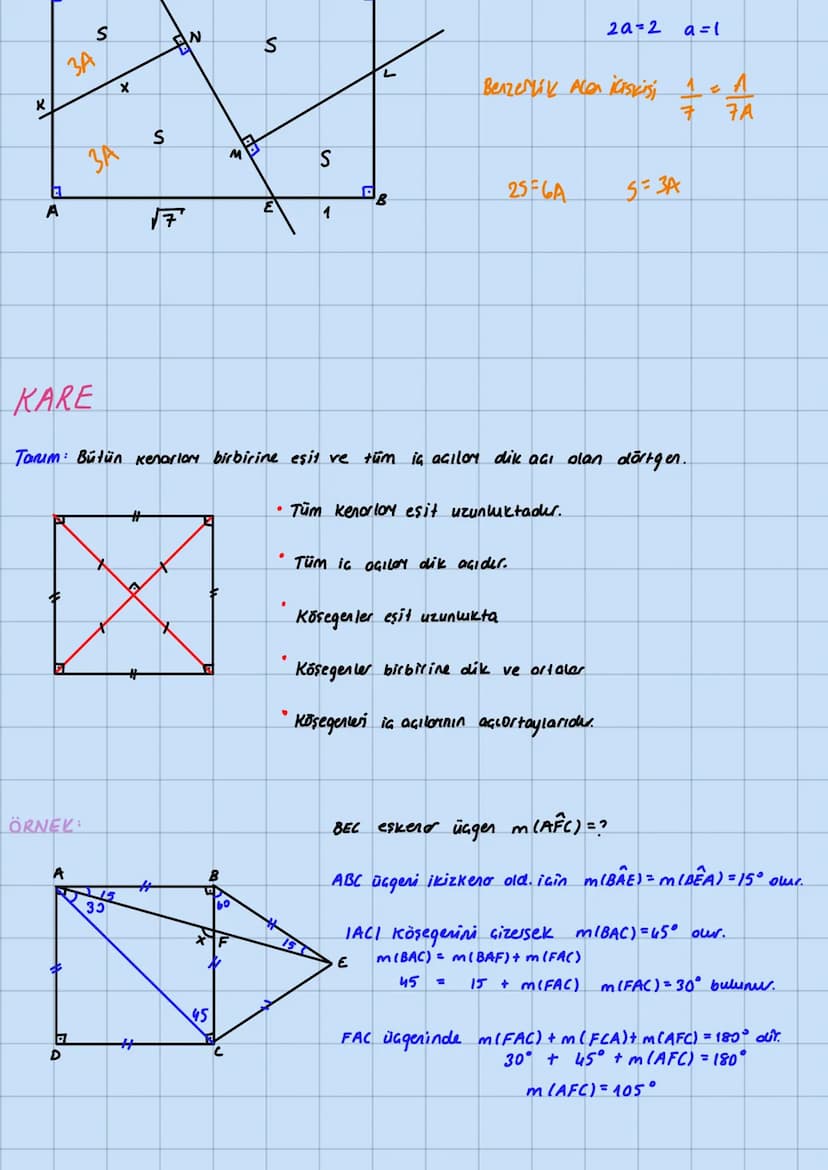 2a=2 a=1
S
N
S
3A
x
L
K
Benzerlik Alan ilişkisi 1/7 = A/7A
S
3A
M
S
2S=6A S=3A
A
√7
E
1
B
KARE
Tanım: Bütün kenarları birbirine eşit ve tüm iç açıları dik açı olan dörtgen.
• Tüm kenarları eşit uzunluktadır.
• Tüm iç açıları dik açıdır.
• Köşegenler eşit uzunlukta
• Köşegenler birbirine dik ve ortalar
• Köşegenleri iç açılarının açıortaylarıdır.
ÖRNEK:
BEC eşkenar üçgen m(AF̂C)=?
A
B
15
30
60
ABC üçgeni ikizkenar old. için m(BÂE)=m(BÊA)=15° olur.
x
F
15
E
|AC| köşegenini çizersek m(BAC)=45° olur.
m(BAC)=m(BAF)+m(FAC)
45 = 15 + m(FAC) m(FAC)=30° bulunur.
45
D
C
FAC üçgeninde m(FAC)+m(FCA)+m(AFC)=180° dir.
30° + 45° + m(AFC)=180°
m(AFC)=105°